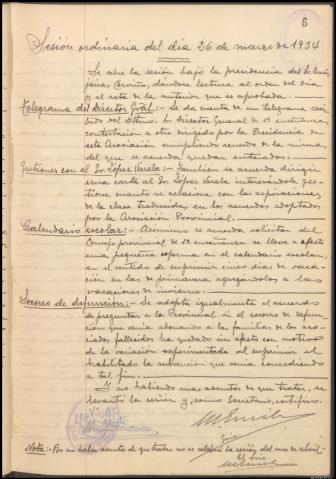 6
Sesión ordinaria del día 26 de marzo de 1934
Se abre la sesión bajo la presidencia del Sr.
dándose lectura al orden del día
y al acta de la anterior que es aprobada.
Telegrama del Director Gral:- Se da cuenta de un telegrama
del Iltmo. Sr. Director General de 1ª enseñanza
contestación a otro dirigido por la Presidencia de
esta Asociación cumpliendo acuerdo de la misma,
del que se acuerda quedar enterados.
Gestiones con el Sr. López Varela:- También se acuerda dirigir
una carta al Sr. López Varela, interesándole ges-
tione cuanto se relaciona con las aspiraciones
de la clase traducidas en los acuerdos adoptados
por la Asociación Provincial.
Calendario escolar:- Asimismo se acuerda solicitar del
Consejo provincial de 1ª enseñanza se lleve a efecto
una pequeña reforma en el calendario escolar,
en el sentido de suprimir cinco días de vaca-
ción en las de primavera, agregándolos a las
vacaciones de invierno.
Socorro de defunción:- Se adopta igualmente el acuerdo
de preguntar a la Provincial si el socorro de defun-
ción que venía abonando a las familias de los aso-
ciados fallecidos ha quedado sin efecto con motivo
de la variación experimentada al suprimir el
habilitado la subvención que venía concediendo
a tal fin.
Y no habiendo más asuntos de que tratar, se
levantó la sesión y, como Secretario, certifico.
Nota:- Por no haber asuntos de que tratar no se celebra la sesión del mes de abril.